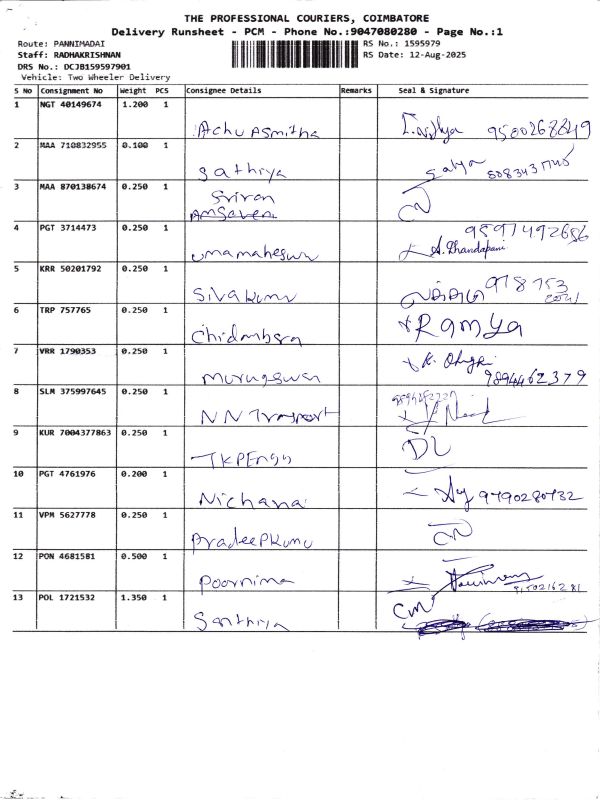 THE PROFESSIONAL COURIERS, COIMBATORE
Delivery Runsheet - PCM - Phone No.:9047080280 - Page No.:1
Route: PANNIMADAI RS No.: 1595979
Staff: RADHAKRISHNAN RS Date: 12-Aug-2025
DRS No.: DCJB159597901
Vehicle: Two Wheeler Delivery
S No Consignment No Weight PCS Consignee Details Remarks Seal & Signature
1 NGT 40149674 1.200 1
Achu Asmitha 9500268849
2 MAA 710832955 0.100 1
Sathiya Satya
3 MAA 870138674 0.250 1 Sriran
4 PGT 3714473 0.250 1
umamaheswr A. Dhandapani
5 KRR 50201792 0.250 1
Sivakumr
6 TRP 757765 0.250 1
Chidmbara Ramya
7 VRR 1790353 0.250 1
Murugeswn 9894462379
8 SLM 375997645 0.250 1
NN Transport
9 KUR 7004377863 0.250 1 DL
TKPEngg
10 PGT 4761976 0.200 1
Nichana 9790280732
11 VPM 5627778 0.250 1
PradeePKumr
12 PON 4681581 0.500 1
Poornima
13 POL 1721532 1.350 1 cm
Santhiya